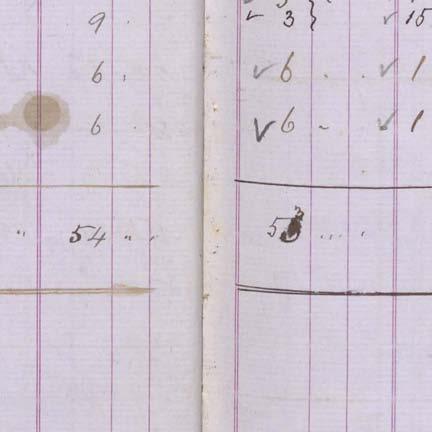 9 .
6 .
6 .
" 54 " .
✓ 3 } ✓ 15
✓ 6 . . ✓ 1
✓ 6 - ✓ 1
53 . . . .